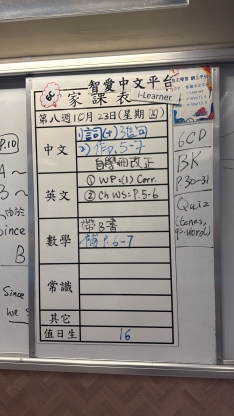 智愛中文平台
i-Learner
家課表
第八週10月23日(星期四)
中文
自學冊改正
英文
① WP:(1) Corr.
② Ch WS: P.5-6
數學
帶B書
補P.6-7
常識
其它
值日生
16
6CD
BK
P.30-31
Quiz
P.10
A~
B~
Since
B
Since
we